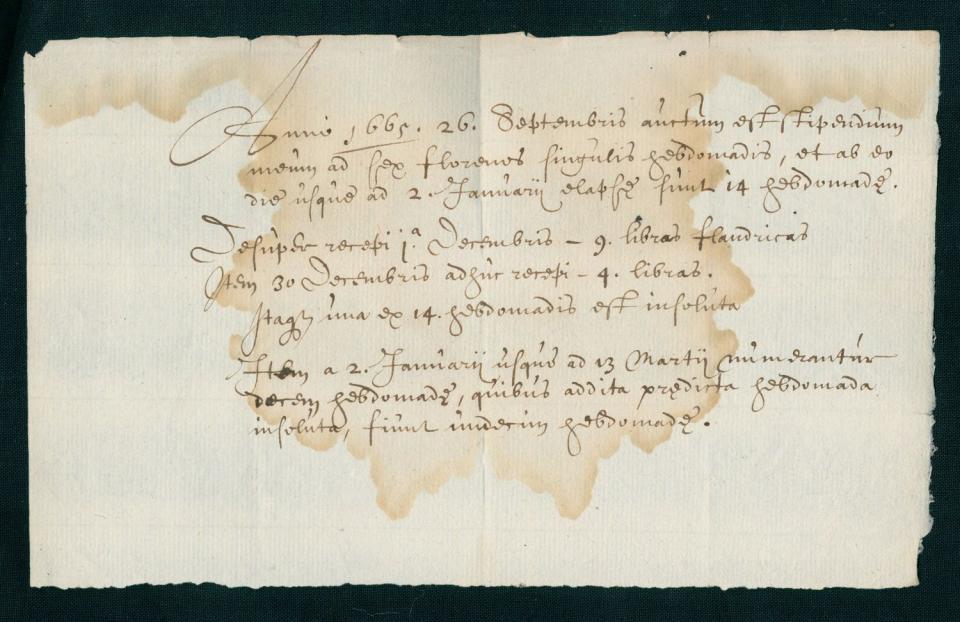 Anno 1665. 26. Septembris auctum est stipendium
meum ad sex florenos singulis hebdomadis, et ab eo
die usque ad 2. Januarij elapsę sunt 14 hebdomadę.
Desuper recepi 1ª. Decembris – 9. libras flandricas
Item 30 Decembris adhuc recepi – 4. libras.
Itaqꝫ una ex 14. hebdomadis est insoluta
Item a 2. Januarij usque ad 13 Martij numerantur
decem hebdomadę, quibus addita prędicta hebdomada
insoluta, fiunt undecim hebdomadę.